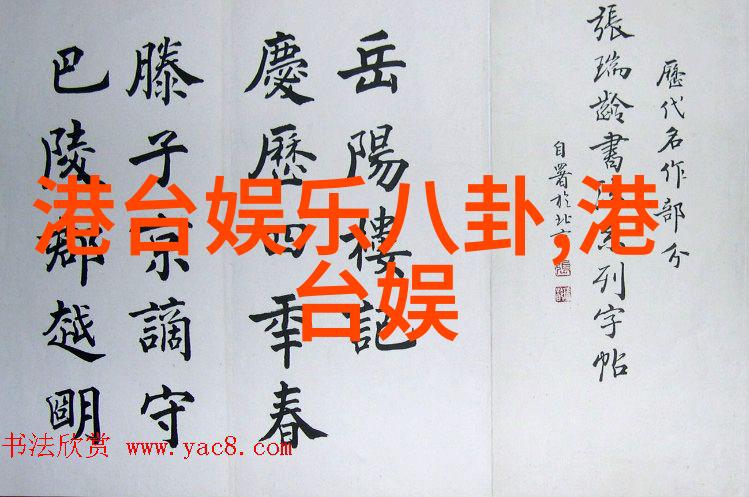 歷代名作部分
張瑞齡書法系列字帖
自署於北京
岳陽樓記
慶歷四年春
滕子京謫守
巴陵郡越明
港台娱乐八卦,港
台娱
书法欣赏 www.yac8.com